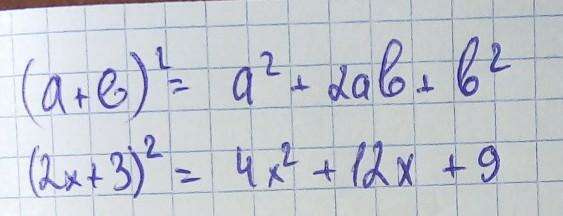 (a+b)² = a² + 2ab + b²
(2x+3)² = 4x² + 12x + 9